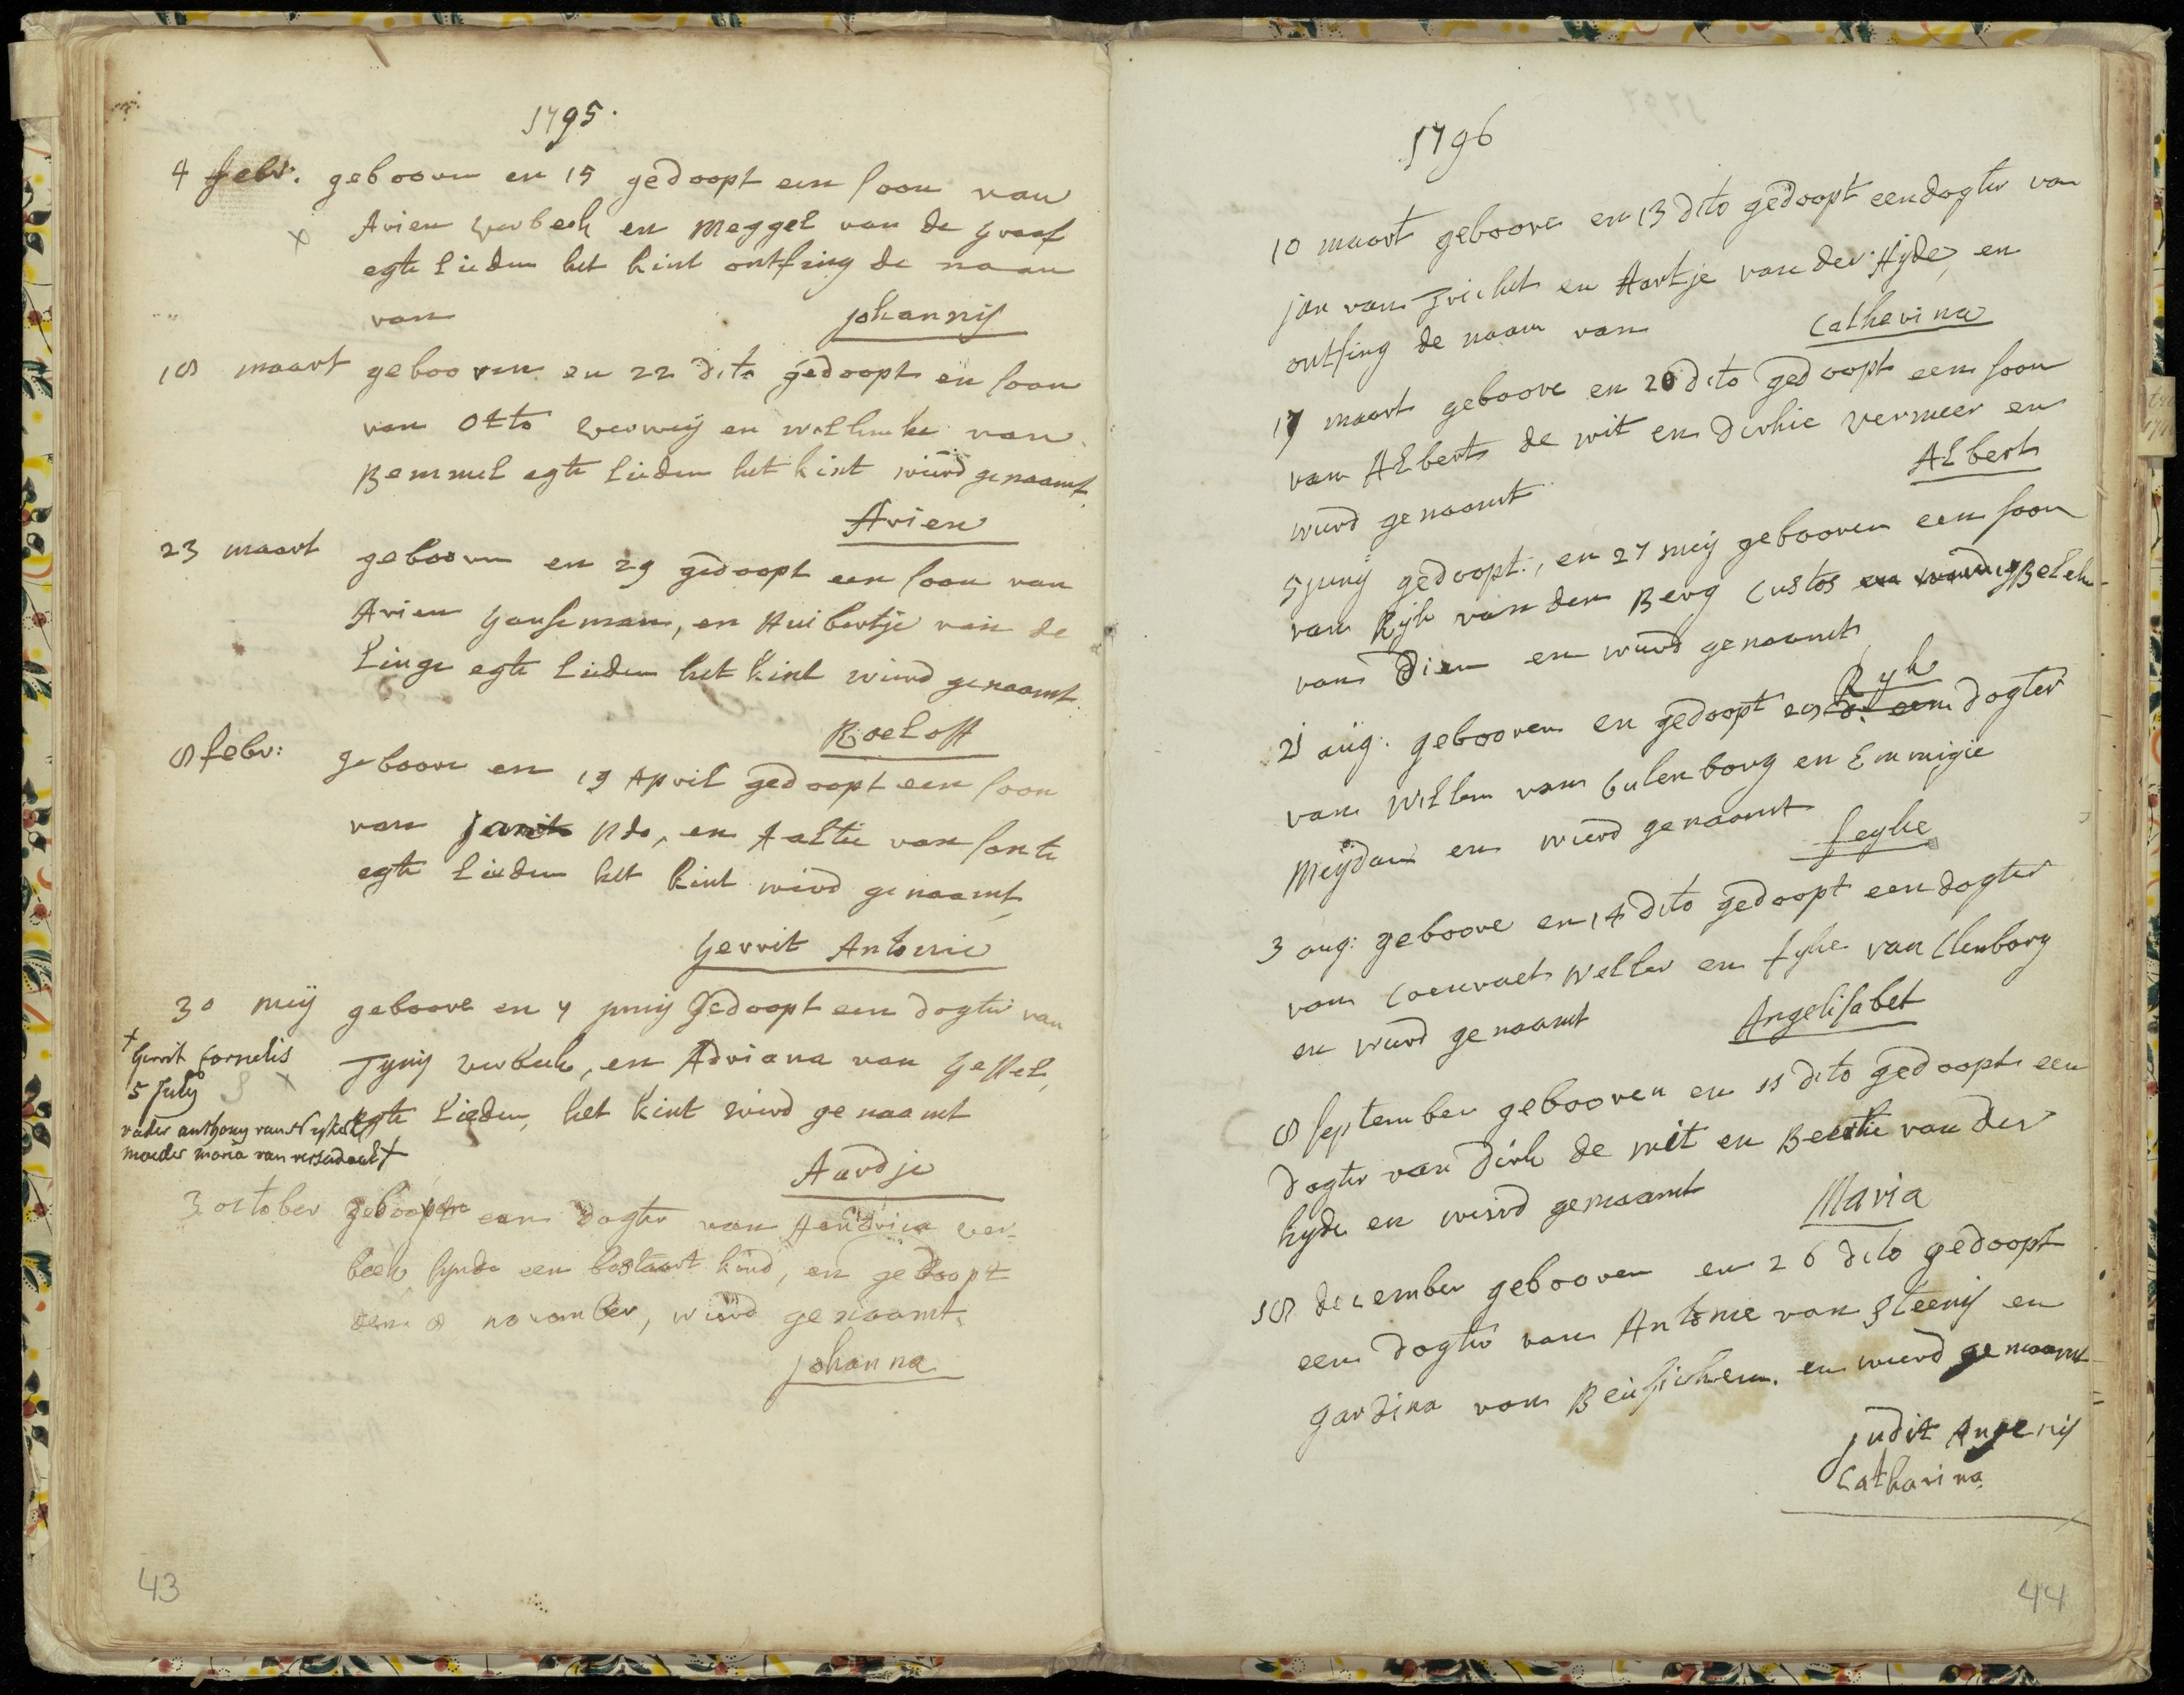 1795.
4 febr. gebooren en 15 gedoopt een soon van
Arien verbeek en Meggel van de graaf
egte lieden het kint ontfing de naam
van Johannis
18 maart gebooren en 22 dito gedoopt en soon
van Otto verweij en willemke van
Bemmel egte lieden het kint wierd genaamt
Arien
23 maart gebooren en 29 gedoopt een soon van
Arien Hansman, en Huibertje van de
Linge egte lieden het kint wierd genaamt
Roeloff
8 febr: geboore en 19 April gedoopt een soon
van Jan Udo, en Aaltie van sante
egte lieden het kint wierd genaamt
Gerrit Antonie
30 meij geboore en 7 junij Gedoopt een dogter van
† Gerrit Cornelis
5 July
vader anthony van
moeder maria van †
Tijnis verbeek, en Adriana van Gessel,
egte Lieden, het kint wierd genaamt
Aardje
3 october geboore een dogter van Hendrica ver-
beek sijnde een bastaart kind, en gedoopt
den 8 november, wierd genaamt.
Johanna
43
1796
10 maart geboore en 13 dito gedoopt een dogter van
jan van Tricht en Aartje van der Hijde, en
ontfing de naam van Catherina
17 maart geboore en 20 dito gedoopt een soon
van Albert de wit en dirkie vermeer en
wierd genaamt Albert
5 junij gedoopt., en 27 meij gebooren een soon
van Rijk van den Berg Custos en Beele
van Dien en wierd genaamt
Ryk
21 aug. gebooren en gedoopt 28 d. een dogter
van Willem van Culenborg en Emmigie
Meijdam en wierd genaamt
Seyke
3 aug: geboore en 14 dito gedoopt een dogter
van Coenraet Weller en sijke van Clenborg
en wierd genaamt Angelisabet
8 september gebooren en 11 dito gedoopt een
dogter van Dirk de wit en Beertie van der
hyde en wierd genaamt Maria
18 december gebooren en 26 dito gedoopt
een dogter van Antonie van Steenis en
gardina van Beusichem. en wierd genaamt
Judit Angenis
Catharina
44